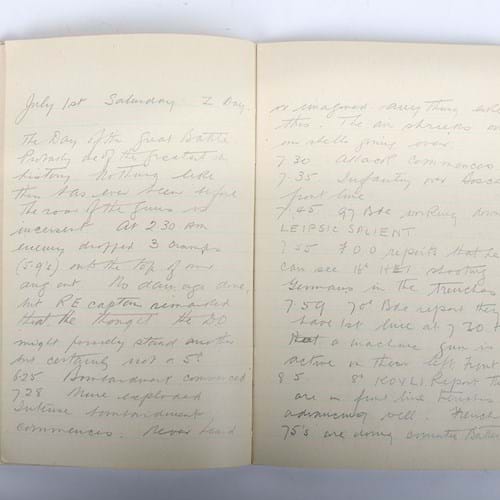 July 1st Saturday Z Day.
The Day of the Great Battle
Probably one of the greatest in
history. Nothing like
this has ever been before
the roar of the guns is
incessant. At 2.30 am
enemy dropped 3 crumps
(5.9's) onto the top of our
dug out. No damage done,
but RE captain remarked
that he thought the DO
might possibly stand another
but certainly not a 5th
6.25 Bombardment commenced
7.28 Mine exploded
Intense bombardment
commences. Never heard
or imagined anything like
this. The air shrieks
our shells going over.
7.30 Attack commences
7.35 Infantry over
front line.
7.45 97 Bde working
LEIPSIC SALIENT.
7.55 FOO reports that he
can see 16 HLI shooting
Germans in the trenches
7.59 70 Bde report they
have 1st line at 7.30
that a machine gun is
active on their left front
8.5 8th KOYLI Report
are in front line trenches
advancing well. French
75's are doing counter Battery